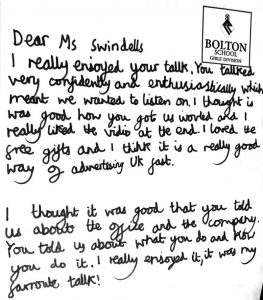 Dear Ms Swindells
BOLTON
SCHOOL
GIRLS' DIVISION
I really enjoyed your tallk. You tallked
very confidently and enthusiastically which
meant we wanted to listen on. I thought is
was good how you got us worked and I
really liked the vidio at the end. I loved the
free gifts and I think it is a really good
way of advertesing UK fast.
I thought it was good that you told
us about the office and the company.
You told us about what you do and how
you do it. I really enjoyed it, it was my
farroute talk!